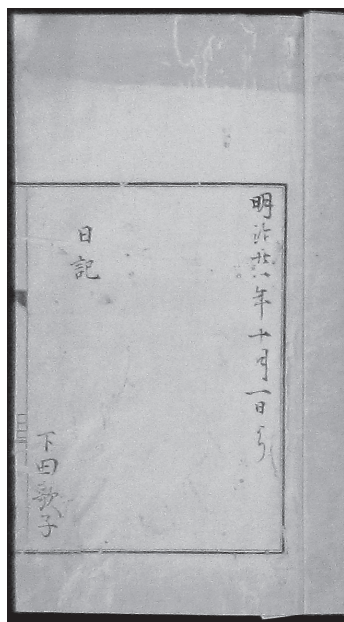 明治廿六年十月一日ゟ
日記
下田歌子